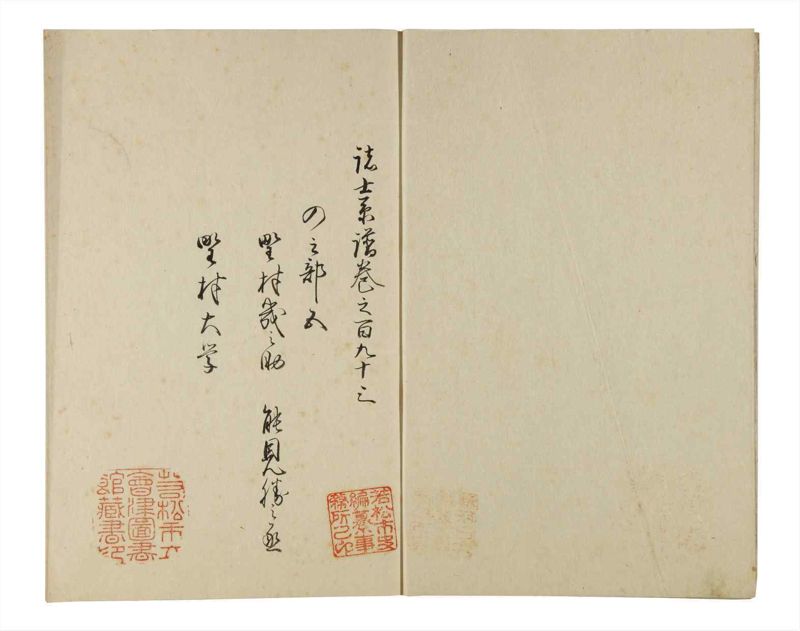 諸士系譜巻之百九十三
の之部五
野村幾之助　能見勝之丞
野村大学
若松市史
編纂事
務所之印
若松市立
會津圖書
館藏書印